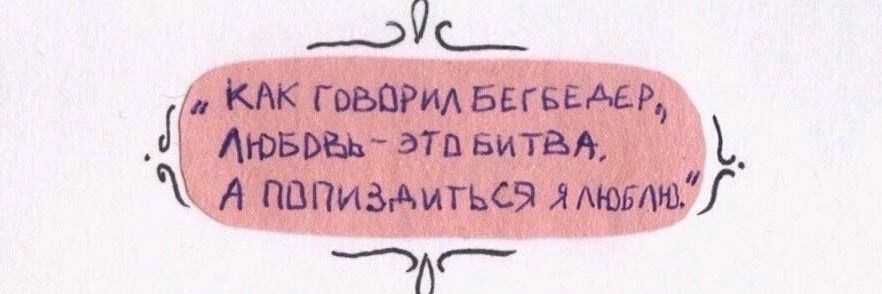 „КАК ГОВОРИЛ БЕГБЕДЕР,
ЛЮБОВЬ - ЭТО БИТВА.
А ПОПИЗДИТЬСЯ Я ЛЮБЛЮ."